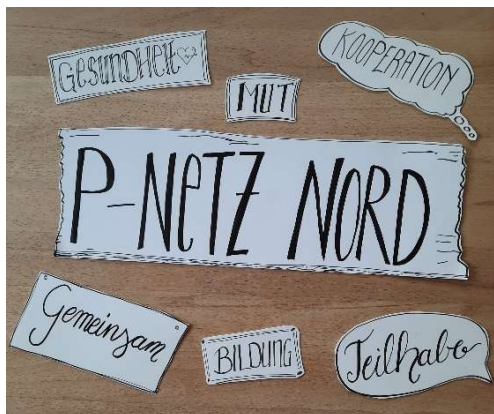 GESUNDHEIT
KOOPERATION
MUT
P-NETZ NORD
Gemeinsam
BILDUNG
Teilhabe